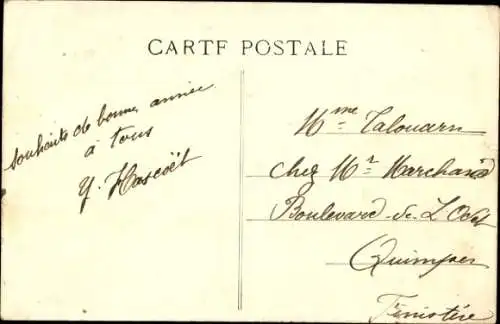 CARTE POSTALE
Souhaits de bonne année
à tous
Y. Hascoët
Mme Talouarn
chez Mr Marchand
Boulevard de L'Odet
Quimper
Finistère